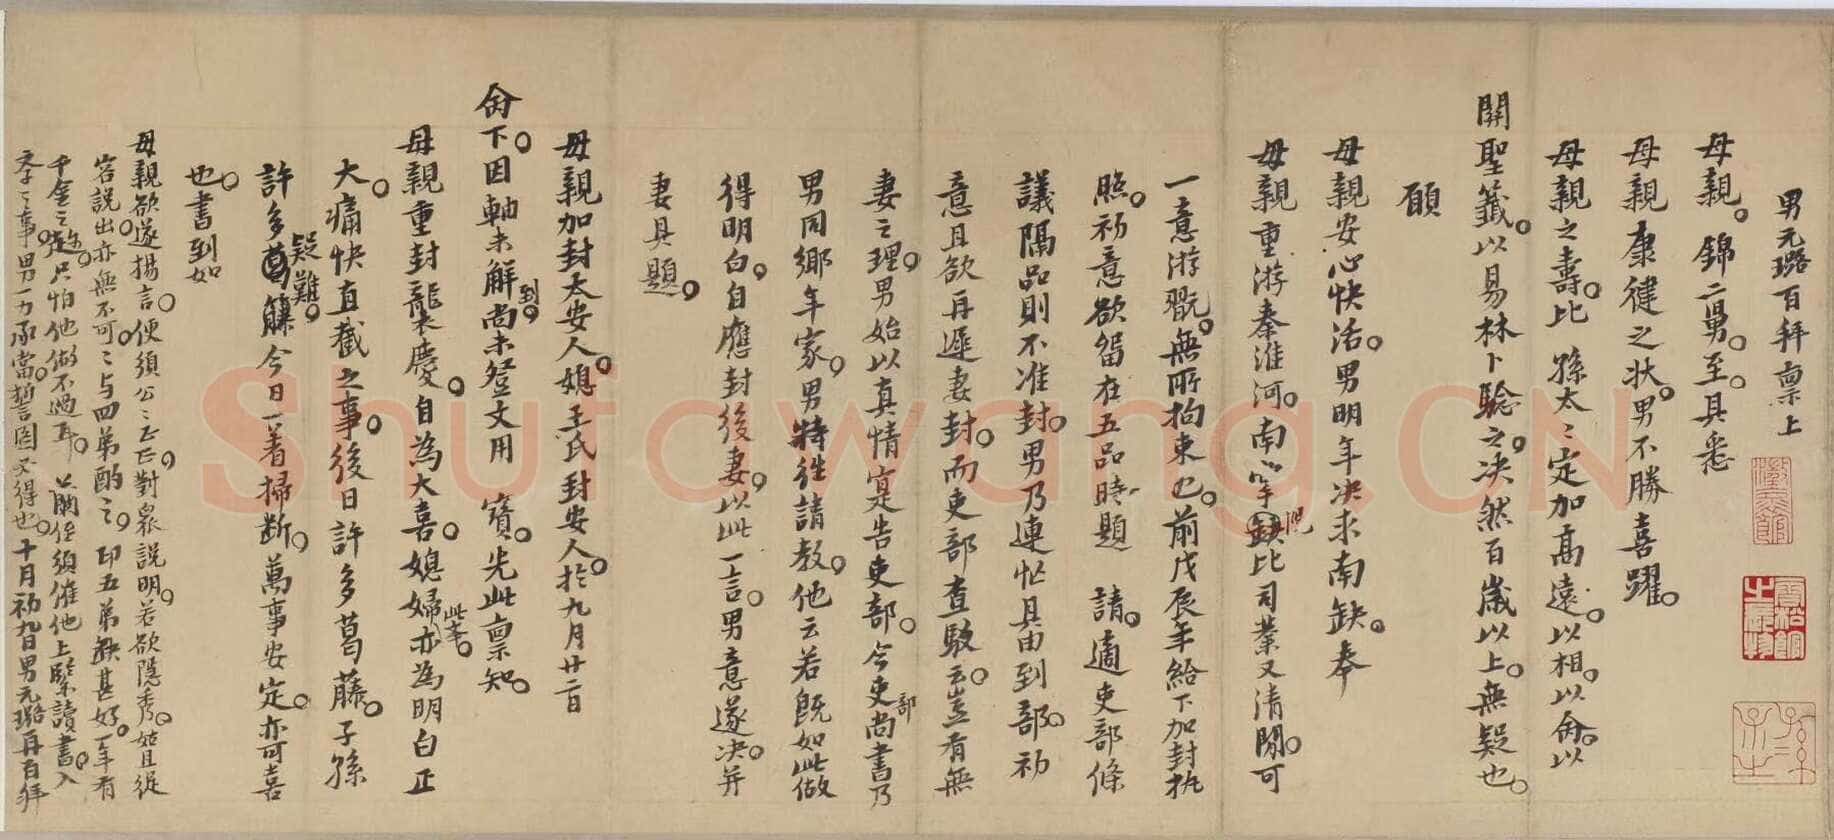 男元璐百拜稟上
母親。錦二舅。至。具悉
母親康健之狀。男不勝喜躍。
母親之壽。比 孫太〻定加高遠。以相。以命。以
關聖籤。以易林卜驗之。決然百歲以上。無疑也。
願
母親安心快活。男明年決求南缺。奉
母親重游秦淮河。南缺比司業又清閒。可
一意游翫。無所拘束也。前戊辰年給下加封執
照。初意欲留在五品時題 請。適吏部條
議隔品則不准封。男乃連忙具由到部。初
意且欲再遲妻封。而吏部查駁云。豈有無
妻之理。男始以真情寔告吏部。今吏部尚書乃
男同鄉年家。男特往請教。他云若既如此做
得明白。自應封後妻。以此一言。男意遂決。并
妻具題。
母親加封太安人。媳王氏封安人。於九月廿二日
命下。因軸未解到。尚未登文用 寶。先此稟知。
母親重封龍袞慶。自為大喜。媳婦此事。亦為明白正
大。痛快直截之事。後日許多葛藤。子孫
許多疑難。今日一著掃斷。萬事安定。亦可喜
也。書到如
母親欲遂揚言。便須公〻正正。對眾說明。若欲隱秀。姑且從
容說出。亦無不可。〻與四弟酌之。印五弟缺甚好。年有
千金之 。只怕他做不過耳。 侄須催他上緊讀書。入
文〻事。男一力承當。 又得也。十月初九日男元璐再百拜
Shufawang.CN